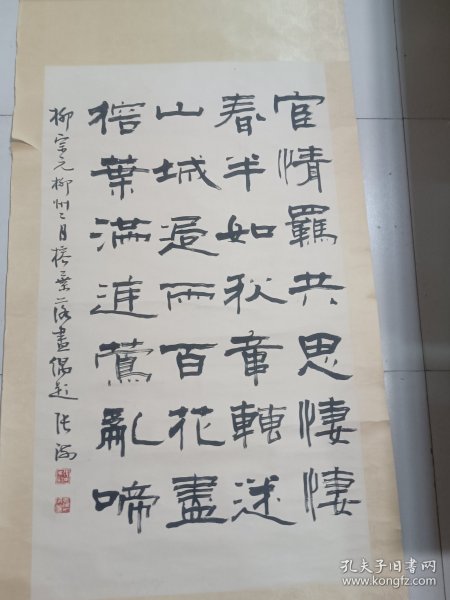 宦情羈共思悽悽
春半如秋意轉迷
山城過雨百花盡
榕葉滿庭鶯亂啼
柳宗元柳州二月榕葉落盡偶題 张
孔夫子旧书网
www.kongfz.com